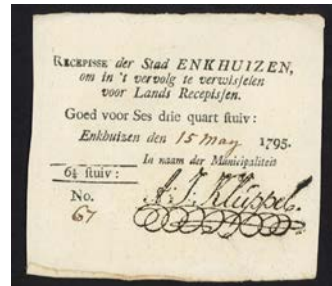 RECEPISSE der Stad ENKHUIZEN,
om in 't vervolg te verwisselen
voor Lands Recepissen.
Goed voor Ses drie quart stuiv:
Enkhuizen den 15 May 1795.
In naam der Municipaliteit
6¾ stuiv:
No.
67
A: J. Kluppel.